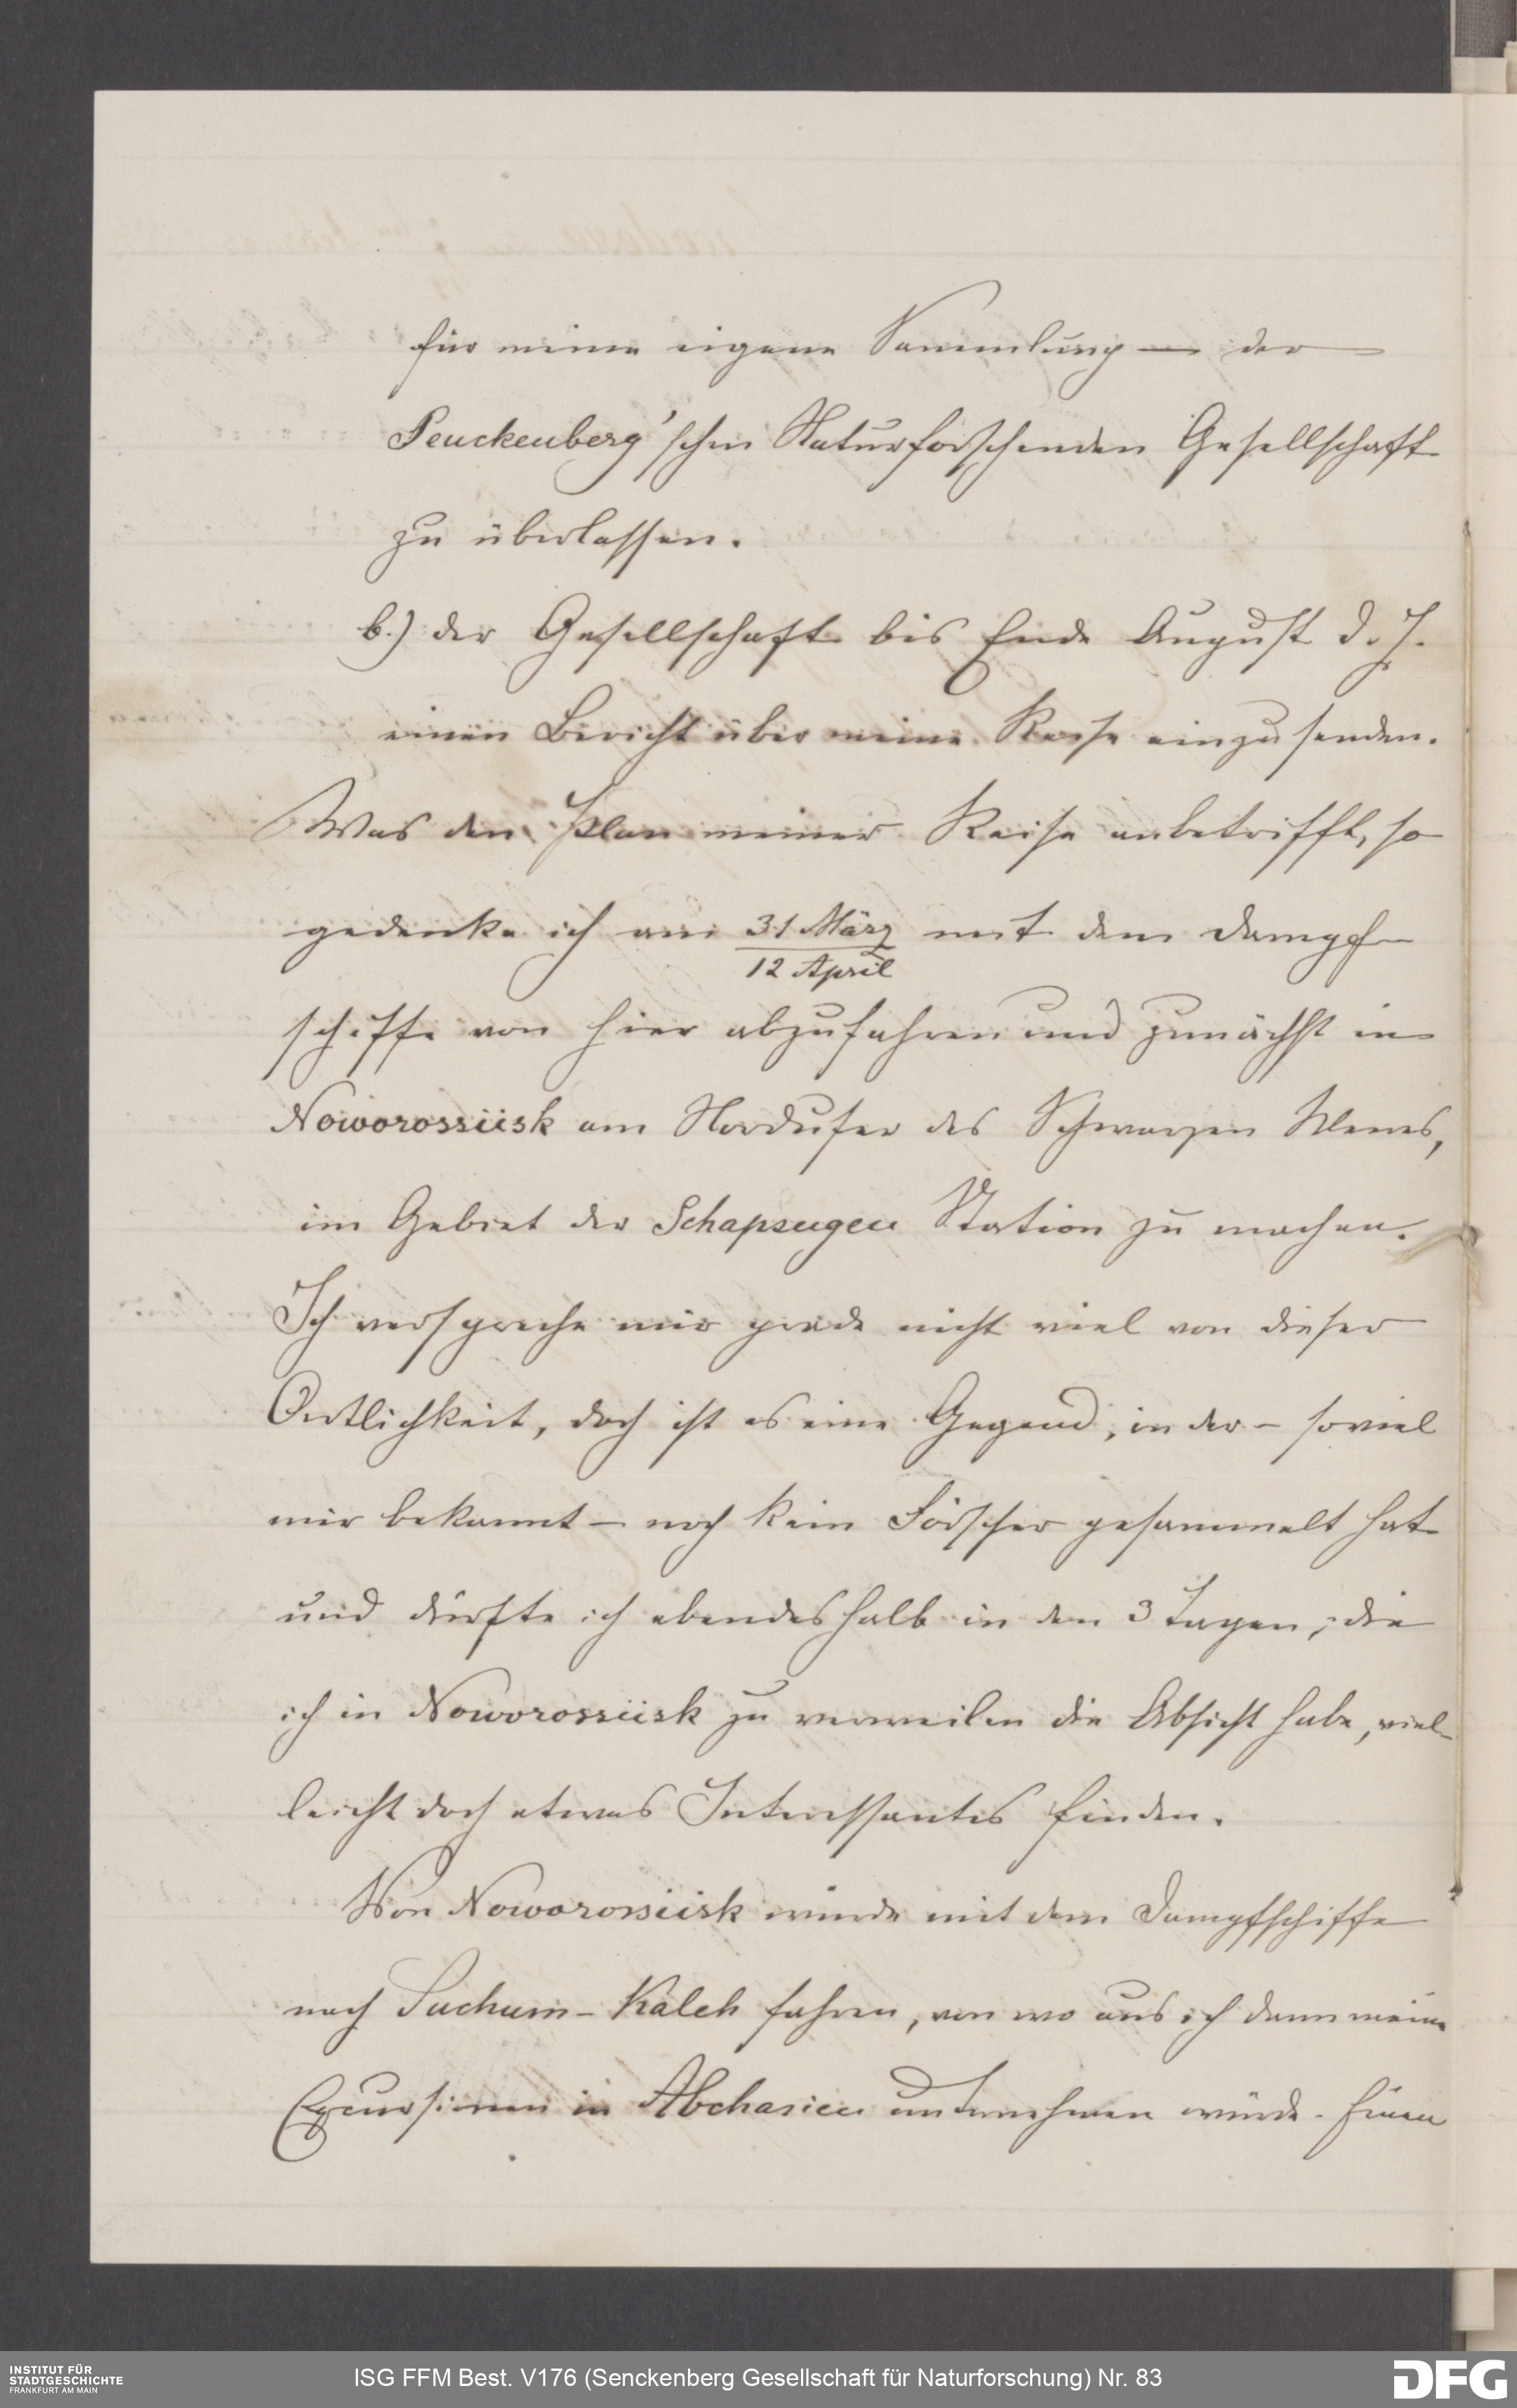 für meine eigene Sammlung — der
Senckenberg'schen Naturforschenden Gesellschaft
zu überlassen.
b.) der Gesellschaft bis Ende August d. J.
einen Bericht über meine Reise einzusenden.
Was den Plan meiner Reise anbetrifft, so
gedenke ich am 31 März mit dem Dampf-
12 April
schiffe von hier abzufahren und zunächst in
Noworossiisk am Nordufer des Schwarzen Meeres,
im Gebiet der Schapsugen Station zu machen.
Ich verspreche mir grade nicht viel von dieser
Oertlichkeit, doch ist es eine Gegend, in der – soviel
mir bekannt – noch kein Forscher gesammelt hat
und dürfte ich ebendeshalb in den 3 Tagen, die
ich in Noworossiisk zu verweilen die Absicht habe, viel-
leicht doch etwas Interessantes finden.
Von Noworossiisk würde mit dem Dampfschiffe
nach Suchum-Kaleh fahren, von wo aus ich dann meine
Excursionen in Abchasien unternehmen würde. Einen
INSTITUT FÜR
STADTGESCHICHTE
FRANKFURT AM MAIN
ISG FFM Best. V176 (Senckenberg Gesellschaft für Naturforschung) Nr. 83
DFG